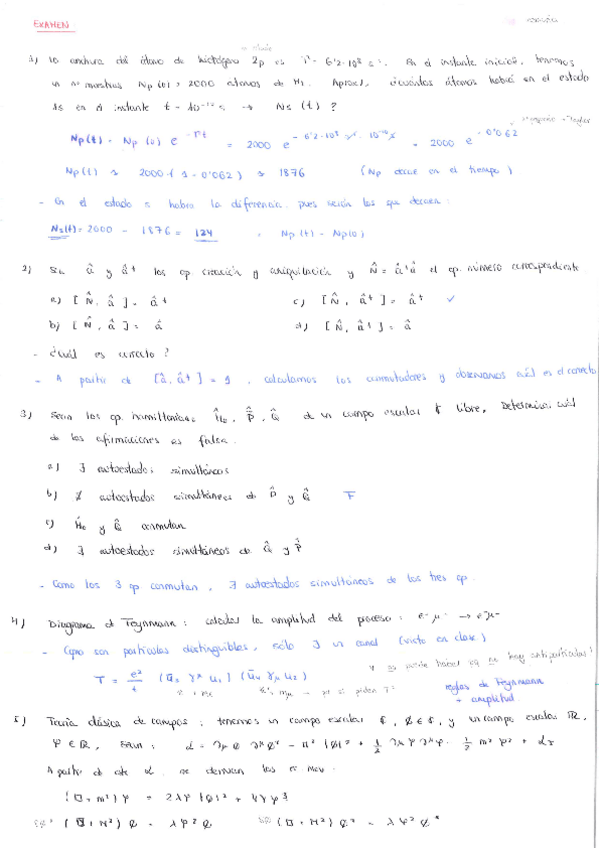 EXAMEN
1) La anchura del átomo de hidrógeno 2p es Γ = 6'2·10⁸ s⁻¹. En el instante inicial, tenemos
en mi muestra Np(0) = 2000 átomos de H₂. Aprox, ¿cuántos átomos habrá en el estado
1s en el instante t = 10⁻¹⁰ s → Ns(t)?
Np(t) = Np(0) e^-Γt = 2000 e^-6'2·10⁸ s⁻¹·10⁻¹⁰s = 2000 e^-0'062
Np(t) ≈ 2000·(1 - 0'062) ≈ 1876 (Np decae en el tiempo)
- En el estado s habrá la diferencia, pues serán los que decaen:
Ns(t) = 2000 - 1876 = 124, Np(t) - Np(0)
2) Sea â y â† los op. creación y aniquilación y N̂ = â†â el op. número correspondiente
a) [N̂, â] = â† c) [N̂, â†] = â† ✓
b) [N̂, â] = â d) [N̂, â†] = â
- ¿Cuál es correcto?
- A partir de [â, â†] = 1, calculamos los conmutadores y observamos cuál es el correcto
3) Sean los op. hamiltoniano, P̂, Q̂ de un campo escalar libre. Determina cuál
de las afirmaciones es falsa.
a) ∃ autoestados simultáneos
b) ∄ autoestados simultáneos de P̂ y Q̂ F
c) y Q̂ conmutan
d) ∃ autoestados simultáneos de Q̂ y P̂
- Como los 3 op conmutan, ∃ autoestados simultáneos de los tres op.
4) Diagrama de Feynmann: calcular la amplitud del proceso: e⁻μ⁻ → e⁻μ⁻
- Como son partículas distinguibles, sólo ∃ un canal (visto en clase)
no puede haber ya no hay antipartículas!
T = e²/t (ū₃ γ^μ u₁) (ū₄ γ_μ u₂)
reglas de Feynmann
+ amplitud
5) Teoría clásica de campos: tenemos un campo escalar ℂ, φ ∈ ℂ, y un campo escalar ℝ,
A partir de este ℒ, se derivan las ec mov
(□ + m²) φ = 2λφ|ϕ|² + 4
(□ + M²) ϕ = λφ²ϕ (□ + M²) ϕ* = λφ²ϕ*